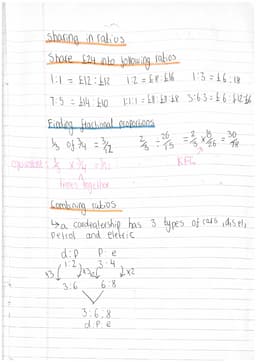 Sharing in ratios
Share £24 into following ratios
1:1 = £12:£12 1:2 = £8:£16 1:3 = £6:18
7:5 = £14:£10 1:1:1 = £8:£8:£8 3:6:3 = £6:£12:£6
Finding fractional proportions
1/3 of 3/4 = 3/12
times together
KFC
Combining ratios
↳ a cardealership has 3 types of cars, disel,
petrol and eletric
d:p p:e
1:2 3:4
x3 x3 x2 x2
3:6 6:8
3:6:8
d:p:e